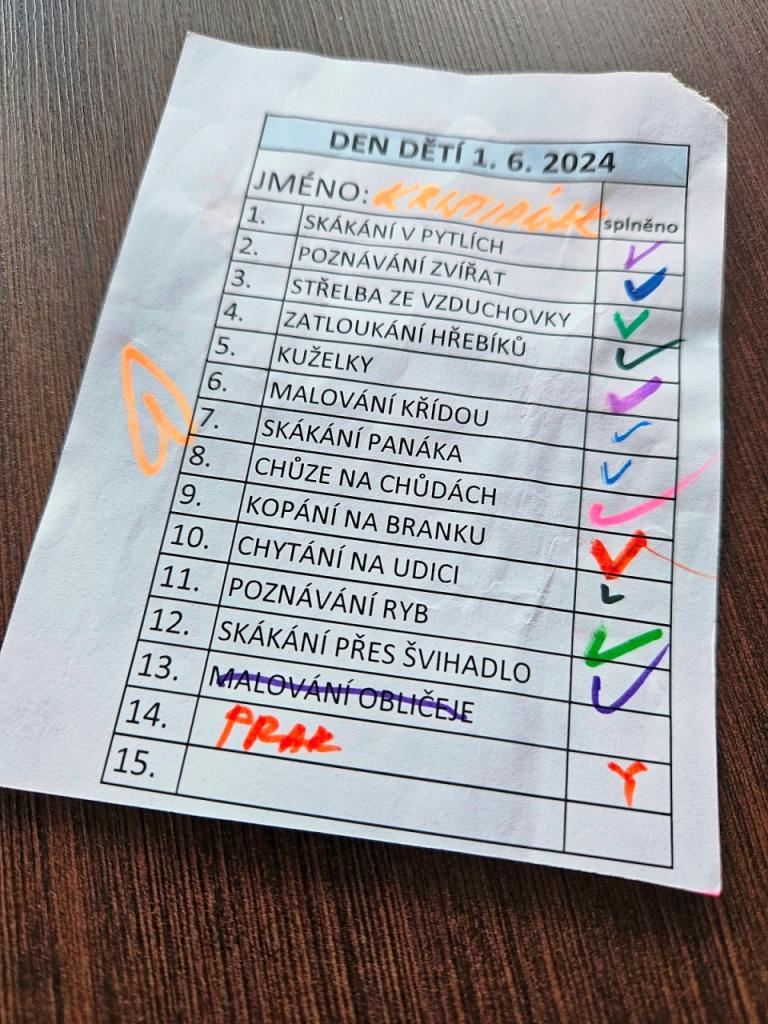 DEN DĚTÍ 1. 6. 2024
JMÉNO: splněno
1. SKÁKÁNÍ V PYTLÍCH
2. POZNÁVÁNÍ ZVÍŘAT
3. STŘELBA ZE VZDUCHOVKY
4. ZATLOUKÁNÍ HŘEBÍKŮ
5. KUŽELKY
6. MALOVÁNÍ KŘÍDOU
7. SKÁKÁNÍ PANÁKA
8. CHŮZE NA CHŮDÁCH
9. KOPÁNÍ NA BRANKU
10. CHYTÁNÍ NA UDICI
11. POZNÁVÁNÍ RYB
12. SKÁKÁNÍ PŘES ŠVIHADLO
13. MALOVÁNÍ OBLIČEJE
14. PRAK
15.